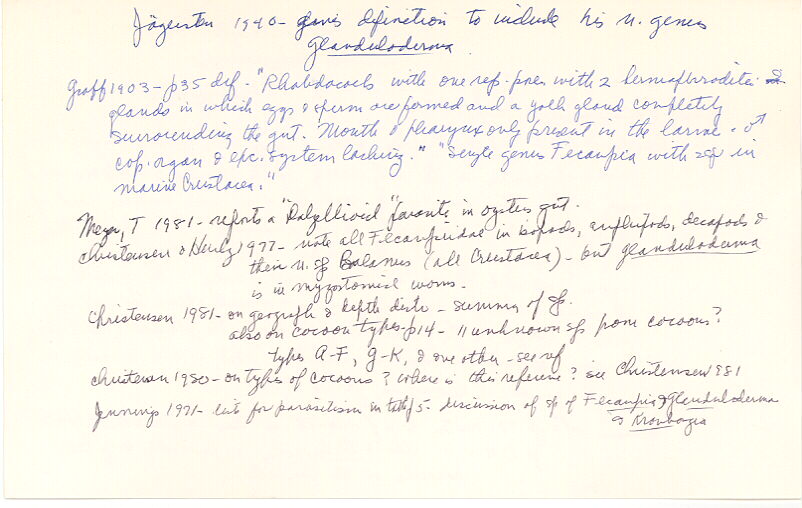 Jägersten 1940- gives definition to include his n. genus
Glanduloderma.
Graff 1903- p35 def. "Rhabdocoels with one rep. pore with 2 hermaphroditic
glands in which eggs & sperm are formed and a yolk gland completely
surrounding the gut. Mouth & pharynx only present in the larvae. ♂
cop. organ & exc. system lacking." "Single genus Fecampia with 2 sp in
marine Crustacea."
Meyer, T 1981- reports a "Dalyellioid" parasite in oyster gut.
Christensen & Hurley 1977- note all Fecampiidae in isopods, amphipods, decapods &
their n. sp Balanus (all Crustacea) - but Glanduloderma
is in myzostomid worms.
Christensen 1981- on geograph & depth distr - summary of sp.
also on cocoon types-p14- 11 unknown sp from cocoons?
types A-F, G-K, & one other - see ref
Christensen 1980- on types of cocoons? where is this reference? see Christensen 981
Jennings 1971- list for parasitism in - discussion of sp of Fecampia & Glanduloderma
& Kronborgia